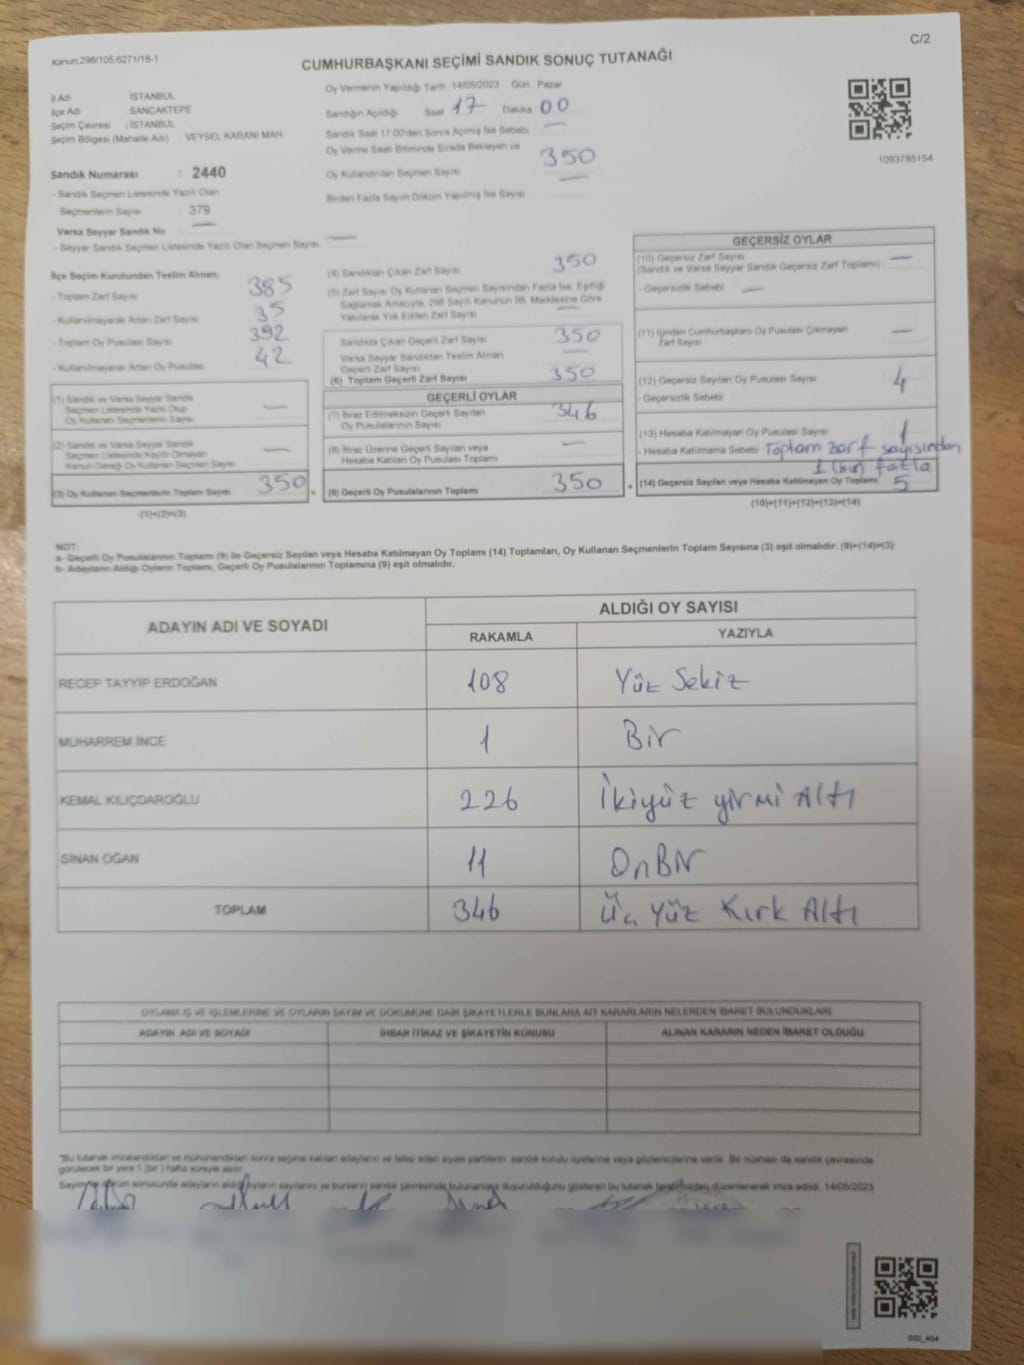 Kanun;298/105,6271/18-1
C/2
CUMHURBAŞKANI SEÇİMİ SANDIK SONUÇ TUTANAĞI
İl Adı : İSTANBUL
İlçe Adı : SANCAKTEPE
Seçim Çevresi : İSTANBUL
Seçim Bölgesi (Mahalle Adı) : VEYSEL KARANİ MAH.
Sandık Numarası : 2440
- Sandık Seçmen Listesinde Yazılı Olan
Seçmenlerin Sayısı : 379
Varsa Seyyar Sandık No : —
- Seyyar Sandık Seçmen Listesinde Yazılı Olan Seçmen Sayısı: —
Oy Vermenin Yapıldığı Tarih: 14/05/2023 Gün: Pazar
Sandığın Açıldığı Saat 17 Dakika 00
Sandık Saat 17.00'den Sonra Açılmış İse Sebebi : —
Oy Verme Saati Bitiminde Sırada Bekleyen ve
Oy Kullandırılan Seçmen Sayısı 350
Birden Fazla Sayım Döküm Yapılmış İse Sayısı —
1093785154
İlçe Seçim Kurulundan Teslim Alınan;
- Toplam Zarf Sayısı 385
- Kullanılmayarak Artan Zarf Sayısı 35
- Toplam Oy Pusulası Sayısı 392
- Kullanılmayarak Artan Oy Pusulası 42
(1) Sandık ve Varsa Seyyar Sandık
Seçmen Listesinde Yazılı Olup
Oy Kullanan Seçmenlerin Sayısı —
(2) Sandık ve Varsa Seyyar Sandık
Seçmen Listesinde Kayıtlı Olmayan
Kanun Gereği Oy Kullanan Seçmen Sayısı —
(3) Oy Kullanan Seçmenlerin Toplam Sayısı 350
(1)+(2)=(3)
=
(4) Sandıktan Çıkan Zarf Sayısı 350
(5) Zarf Sayısı Oy Kullanan Seçmen Sayısından Fazla İse, Eşitliği
Sağlamak Amacıyla, 298 Sayılı Kanunun 98. Maddesine Göre
Yakılarak Yok Edilen Zarf Sayısı —
Sandıkta Çıkan Geçerli Zarf Sayısı 350
Varsa Seyyar Sandıktan Teslim Alınan
Geçerli Zarf Sayısı —
(6) Toplam Geçerli Zarf Sayısı 350
GEÇERLİ OYLAR
(7) İtiraz Edilmeksizin Geçerli Sayılan
Oy Pusulalarının Sayısı 346
(8) İtiraz Üzerine Geçerli Sayılan veya
Hesaba Katılan Oy Pusulası Toplamı —
(9) Geçerli Oy Pusulalarının Toplamı 350
+
GEÇERSİZ OYLAR
(10) Geçersiz Zarf Sayısı
(Sandık ve Varsa Seyyar Sandık Geçersiz Zarf Toplamı) —
- Geçersizlik Sebebi : —
(11) İçinden Cumhurbaşkanı Oy Pusulası Çıkmayan
Zarf Sayısı —
(12) Geçersiz Sayılan Oy Pusulası Sayısı 4
- Geçersizlik Sebebi :
(13) Hesaba Katılmayan Oy Pusulası Sayısı 1
- Hesaba Katılmama Sebebi Toplam zarf sayısından
1 (bir) fazla
(14) Geçersiz Sayılan veya Hesaba Katılmayan Oy Toplamı 5
(10)+(11)+(12)+(13)=(14)
NOT:
a- Geçerli Oy Pusulalarının Toplamı (9) ile Geçersiz Sayılan veya Hesaba Katılmayan Oy Toplamı (14) Toplamları, Oy Kullanan Seçmenlerin Toplam Sayısına (3) eşit olmalıdır. (9)+(14)=(3)
b- Adayların Aldığı Oyların Toplamı, Geçerli Oy Pusulalarının Toplamına (9) eşit olmalıdır.
ADAYIN ADI VE SOYADI
ALDIĞI OY SAYISI
RAKAMLA YAZIYLA
RECEP TAYYİP ERDOĞAN 108 Yüz Sekiz
MUHARREM İNCE 1 Bir
KEMAL KILIÇDAROĞLU 226 İkiyüz yirmi Altı
SİNAN OĞAN 11 OnBir
TOPLAM 346 Üç Yüz Kırk Altı
OYLAMA İŞ VE İŞLEMLERİNE VE OYLARIN SAYIM VE DÖKÜMÜNE DAİR ŞİKAYETLERLE BUNLARA AİT KARARLARIN NELERDEN İBARET BULUNDUKLARI
ADAYIN ADI VE SOYADI İHBAR İTİRAZ VE ŞİKAYETİN KONUSU ALINAN KARARIN NEDEN İBARET OLDUĞU
*Bu tutanak imzalandıktan ve mühürlendikten sonra seçime katılan adayların ve talep eden siyasi partilerin sandık kurulu üyelerine veya gözlemcilerine verilir. Bir nüshası da sandık çevresinde
görülecek bir yere 1 (bir) hafta süreyle asılır.
Sayım ve döküm sonucunda adayların aldığı oyların sayılarını ve bunların sandık çevresinde bulunanlara duyurulduğunu gösteren bu tutanak tarafımızdan düzenlenerek imza edildi. 14/05/2023
SSI_404